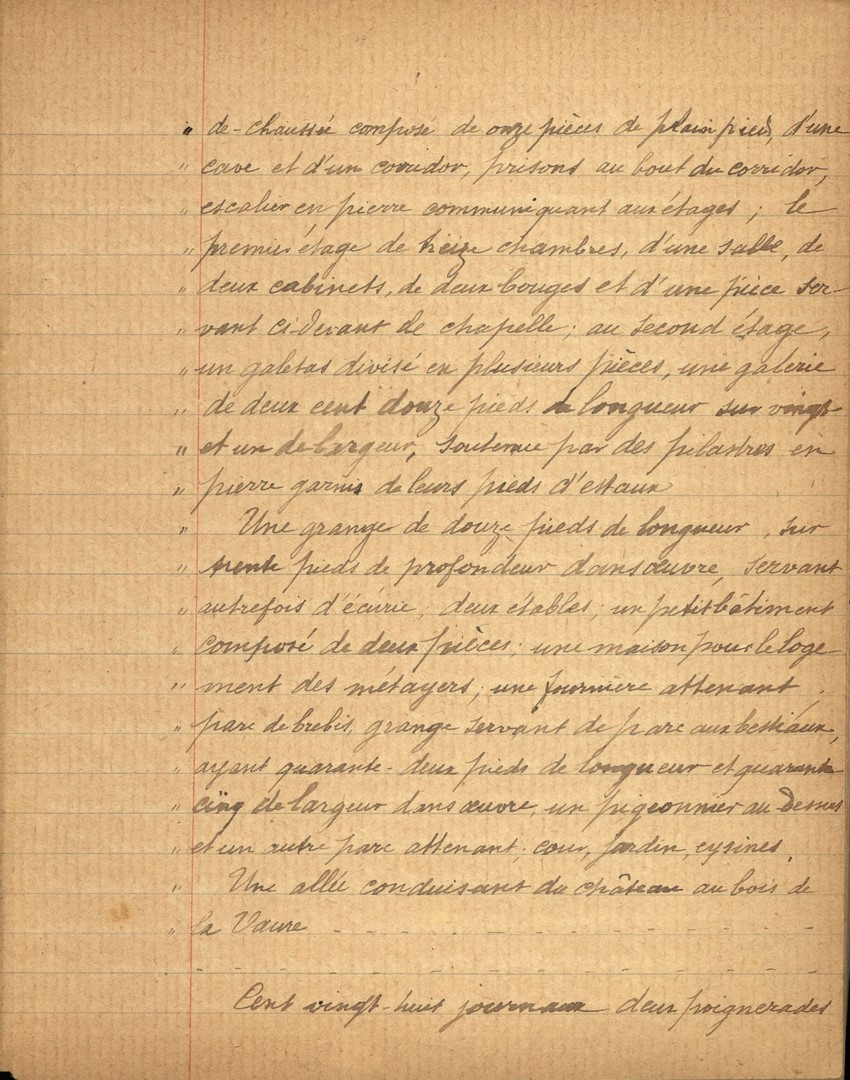 " de-chaussée composé de onze pièces de plain pied, d'une
" cave et d'un corridor, prisons au bout du corridor,
" escalier en pierre communiquant aux étages ; le
" premier étage de treize chambres, d'une salle, de
" deux cabinets, de deux bouges et d'une pièce ser-
" vant ci-devant de chapelle ; au second étage,
" un galetas divisé en plusieurs pièces, une galerie
" de deux cent douze pieds de longueur sur vingt-
" et un de largeur, soutenue par des pilastres en
" pierre garnis de leurs pieds d'estaux
" Une grange de douze pieds de longueur, sur
" trente pieds de profondeur dans œuvre, servant
" autrefois d'écurie ; deux étables ; un petit bâtiment
" composé de deux pièces ; une maison pour le loge-
" ment des métayers ; une fournière attenant,
" parc de brebis, grange servant de parc aux bestiaux,
" ayant quarante-deux pieds de longueur et quarante
" cinq de largeur dans œuvre, un pigeonnier au dessus
" et un autre parc attenant ; cour, jardin, eysines.
" Une allée conduisant du château au bois de
" la Vaure - - - - - - - - - - - -
- - - - - - - - - - - - - - - -
Cent vingt-huit journaux deux poignerades